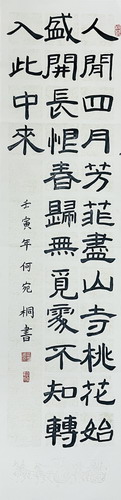 人間四月芳菲盡山寺桃花始
盛開長恨春歸無覓處不知轉
入此中來
壬寅年何宛桐書